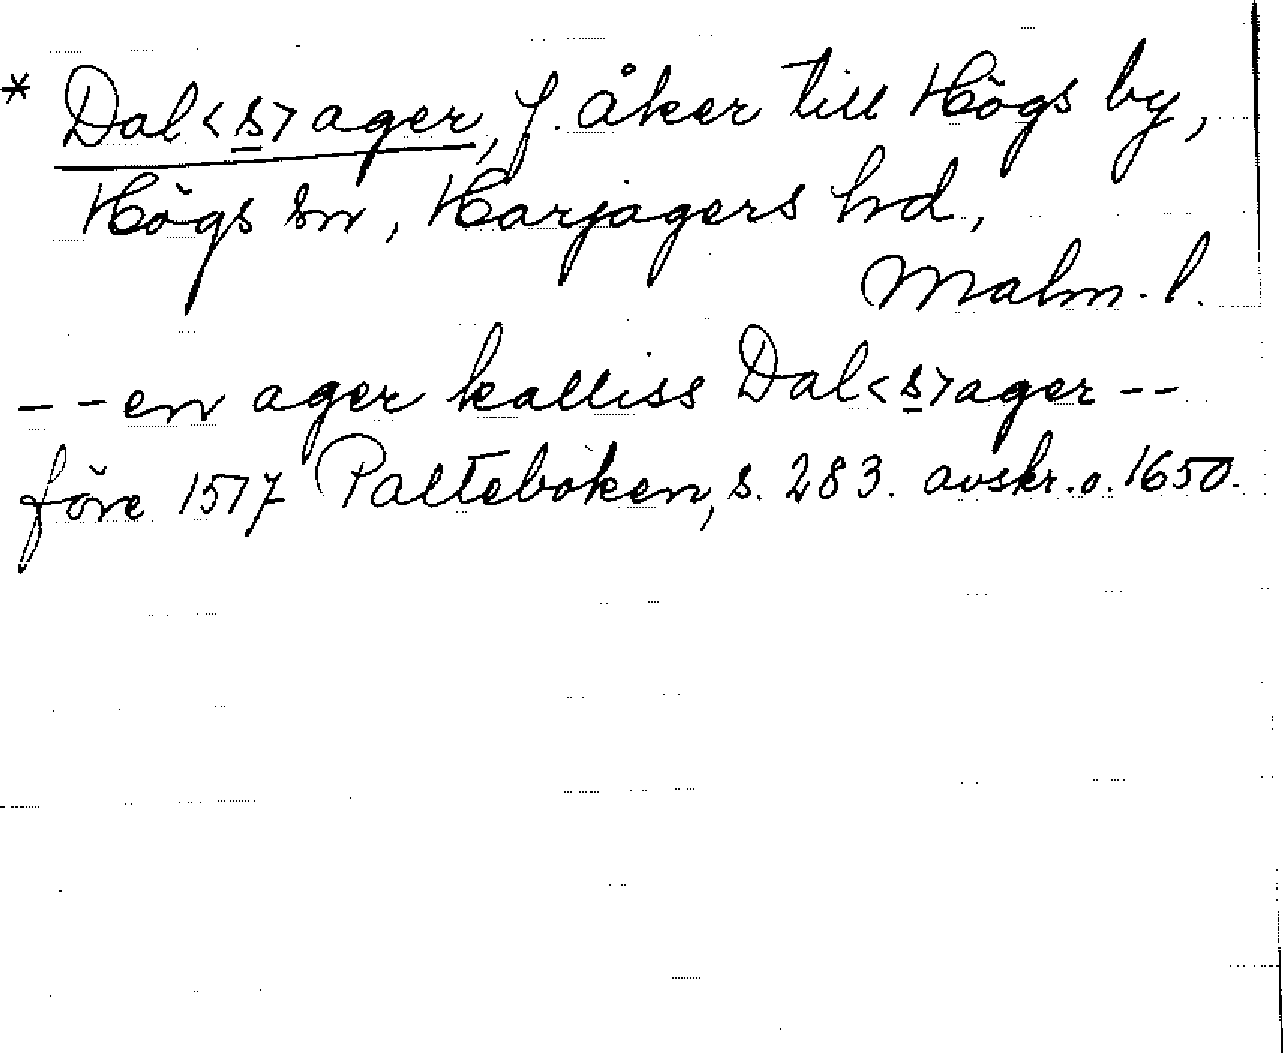 * Dal<s>ager, f. åker till Högs by,
Högs sn, Harjagers hd,
Malm. l.
-- en ager kalliss Dal<s>ager --
före 1517 Palteboken, s. 283. avskr. o. 1650.